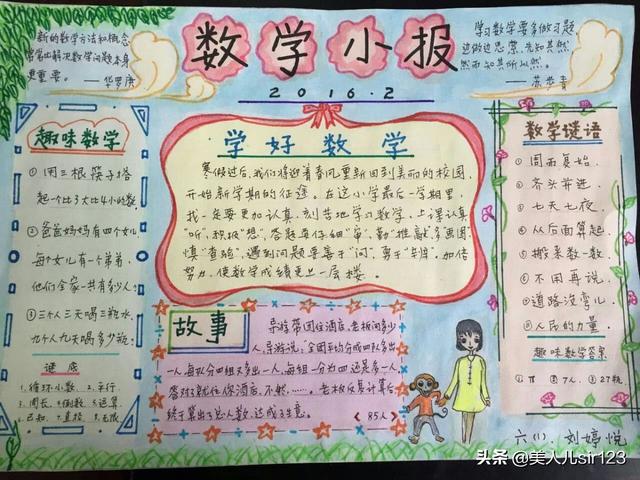 数学小报
2016.2
新的数学方法和概念
常常比解决数学问题本身
更重要。
——华罗庚
学习数学要多做习题
边做边思索，先知其然
然而知其所以然。
——苏步青
趣味数学
①用三根筷子搭
起一个比3大比4小的数。
②爸爸妈妈有四个女儿
每个女儿有一个弟弟，
他们全家一共有多少人？
③三个人三天喝三瓶水，
九个人九天喝多少瓶？
谜底
1.循环小数、2.平行、
3.周长、4.倒数、5.运算
6.已知、7.直径、8.无限
学好数学
寒假过后，我们将迎着春风重新回到美丽的校园，
开始新学期的征途。在这小学最后一学期里，
我一定要更加认真、刻苦地学习数学，上课认真
“听”，积极“想”，答题要仔细“审”，勤“推敲”，多画图，
慎“查验”，遇到问题要善于“问”，勇于
加倍
努力，使数学成绩更上一层楼。
故事
导游带团住酒店，老板问多少
人，导游说：“全团平均分成四队多出
一人，每队分四组又多出一人，每组一分为四还是多一人
答对了就住你酒店，不然……。老板反复计算后，
终于算出了总人数，达成了生意。
（85人）
数学谜语
①周而复始、
②齐头并进、
③七天七夜、
④从后面算起、
⑤挪来数一数、
⑥不用再说、
⑦道路没弯儿、
⑧人民的力量、
趣味数学答案
①π ②7人、③27瓶
六(1)、刘婷悦
头条 @美人儿sir123